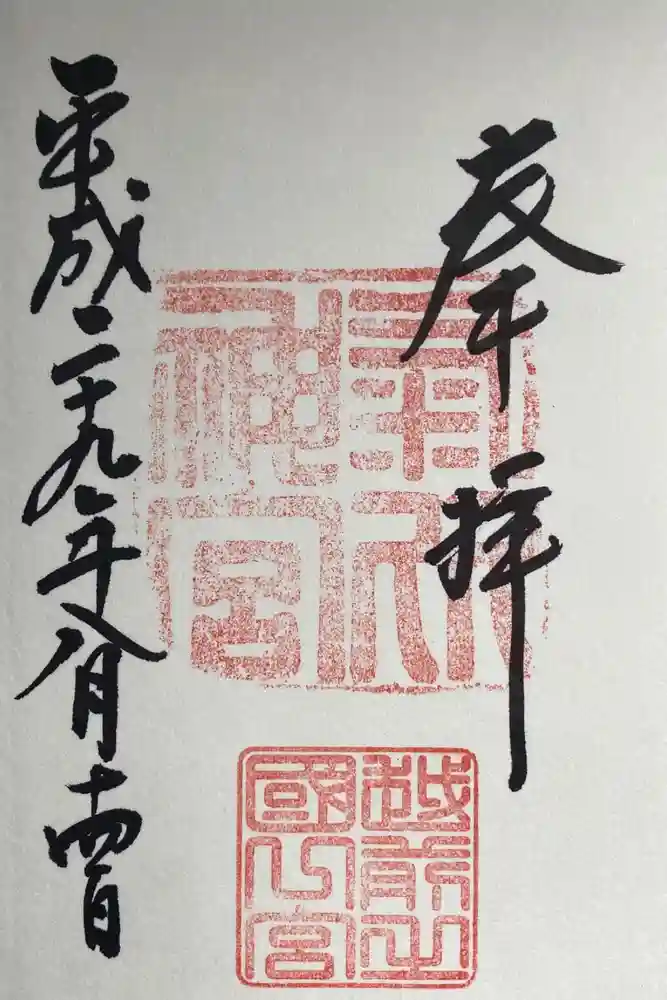 奉拝
神宮
越前之
國 宮
平成二十九年八月十四日